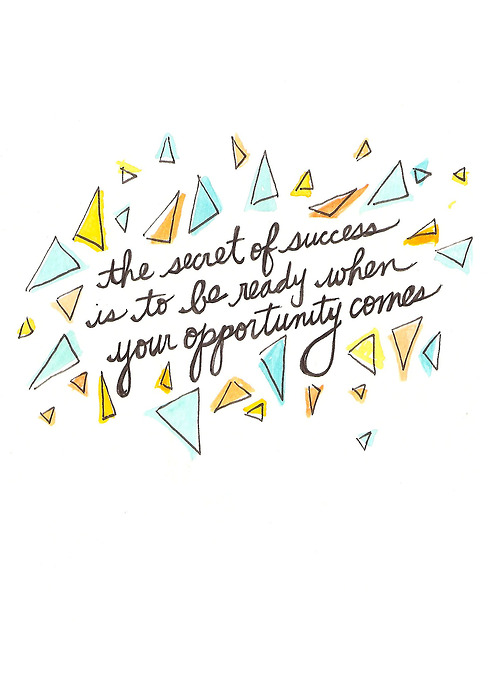 the secret of success
is to be ready when
your opportunity comes